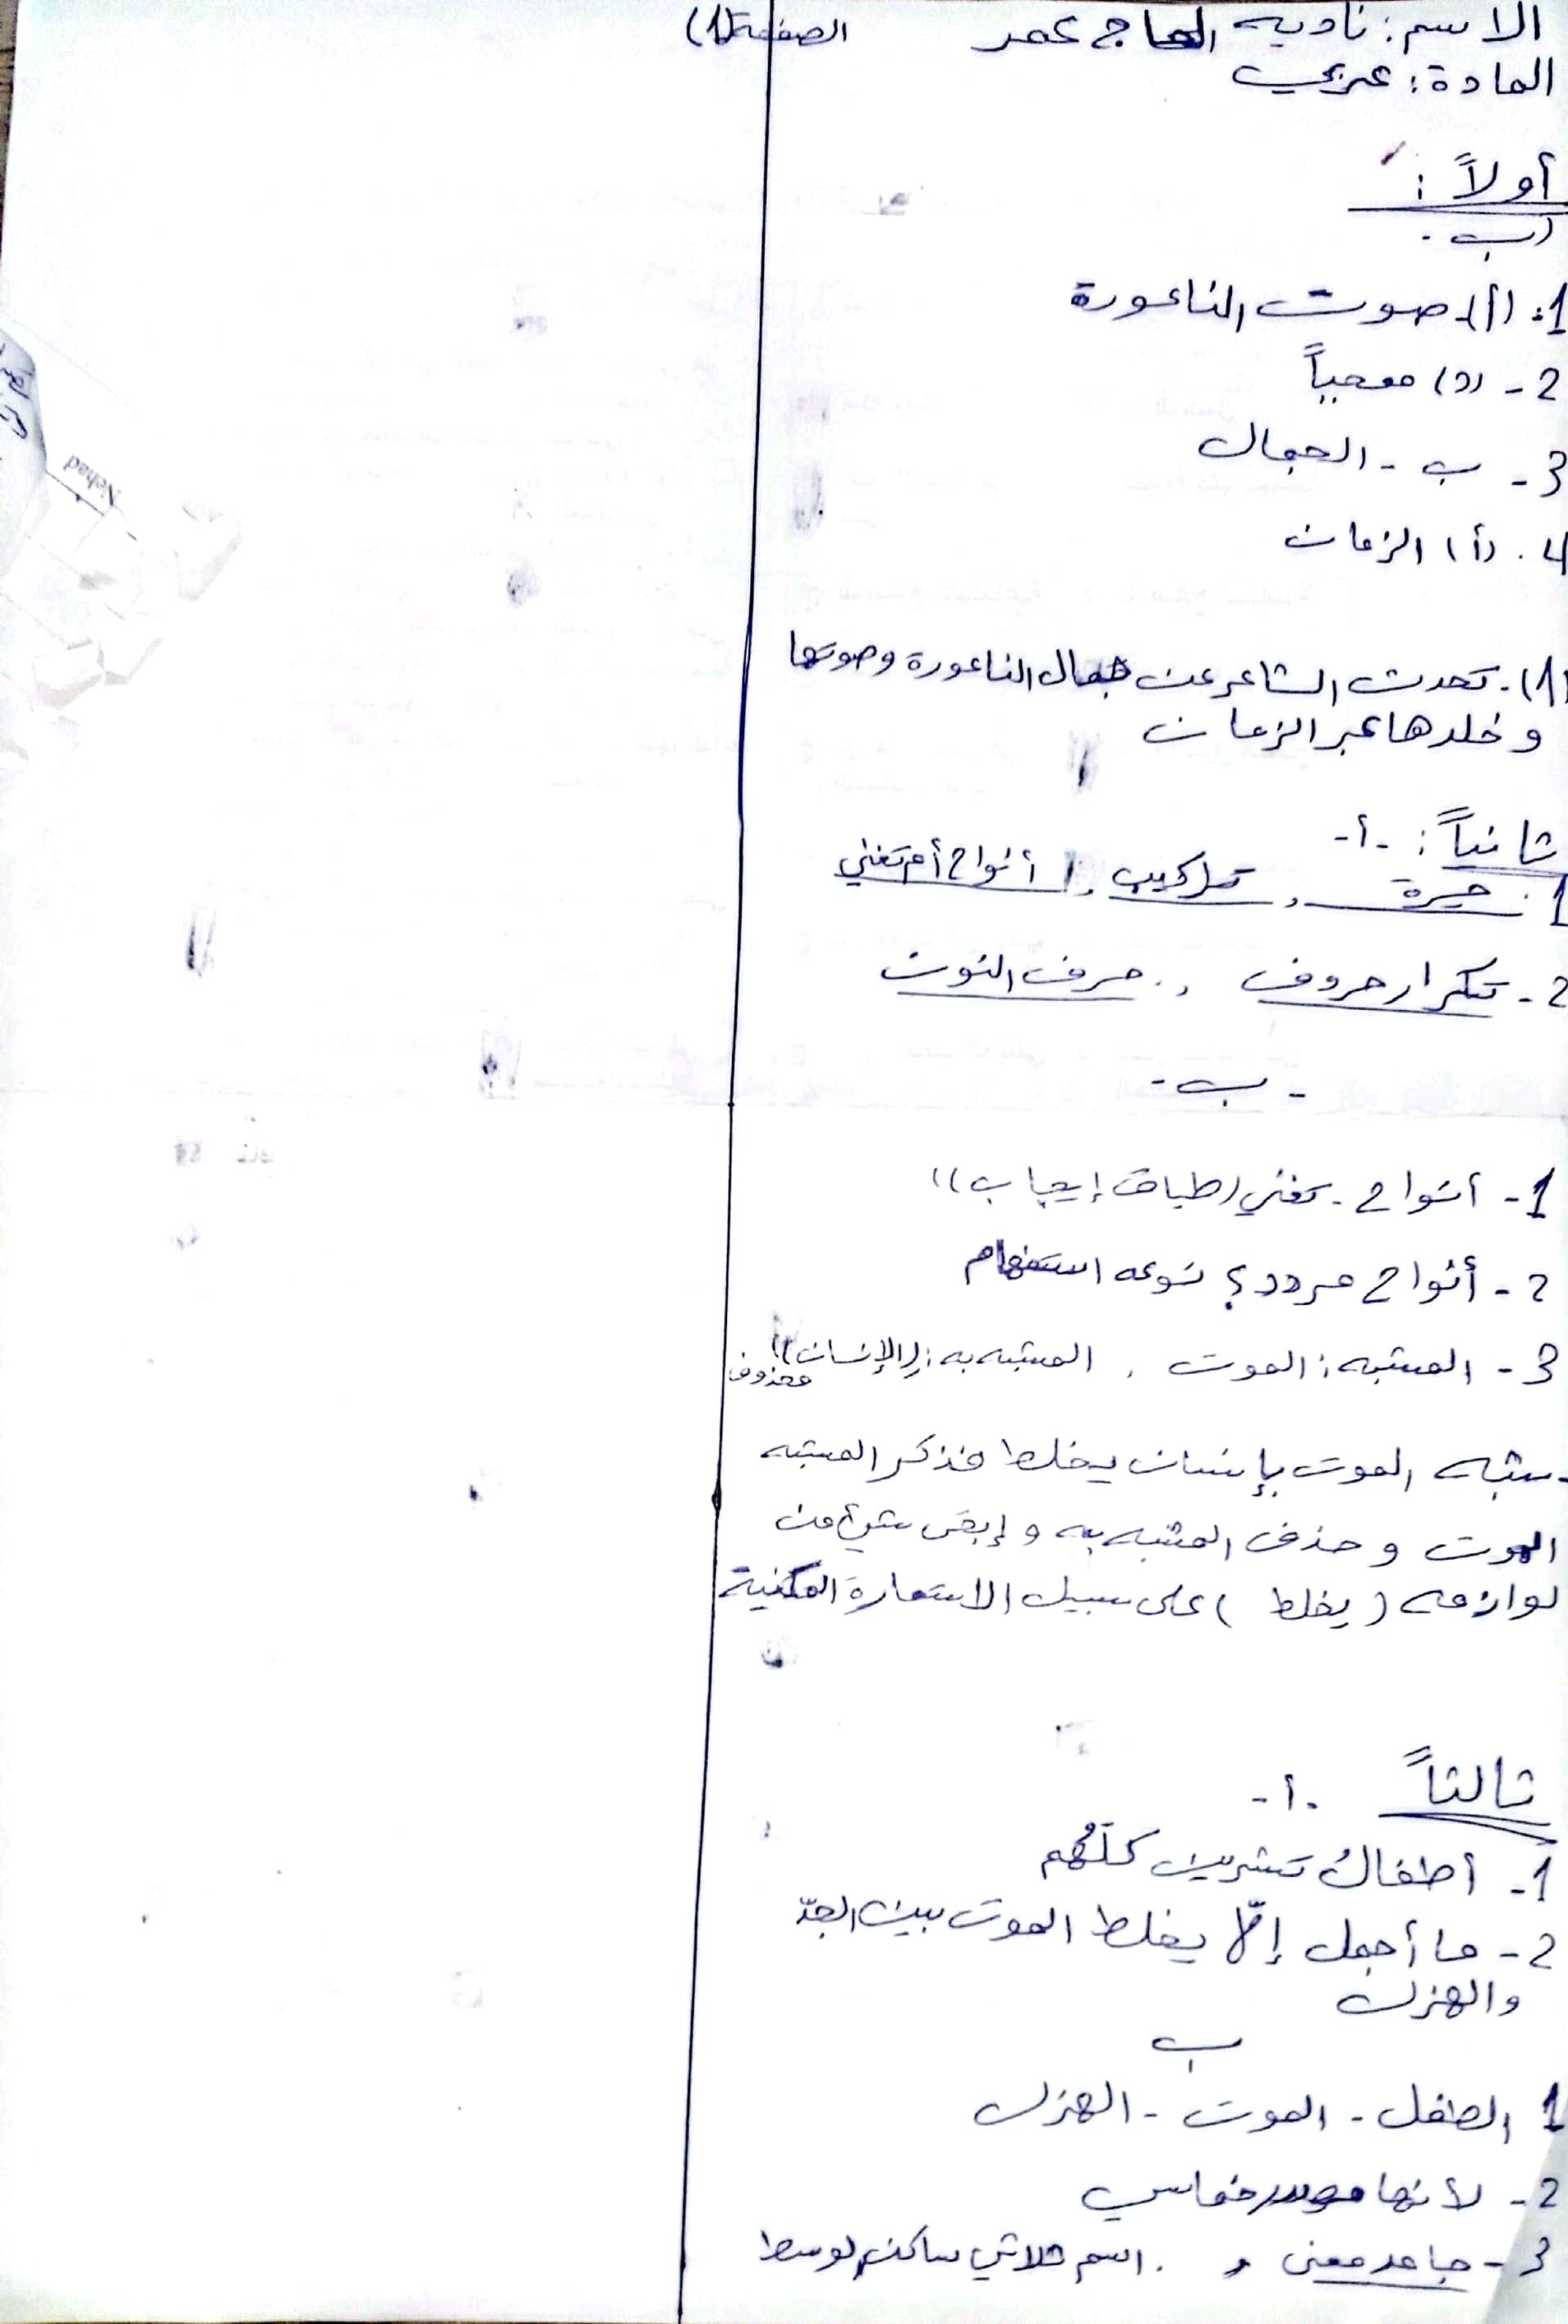 الاسم: ناديه الحاج عمر الصفحة(1)
المادة: عربي
أولاً:
(ب-
1: (أ) صوت الناعورة
2- (د) معجباً
3- ب - الجمال
4. (أ) الزمان
(1). تحدث الشاعر عن جمال الناعورة وصوتها
وخلدها عبر الزمان
ثانياً: -أ-
1. حيرة , تراكيب , أنواح أم تغني
2- تكرار حروف , حرف النون
- ب -
1- أنواح - تغني (طباق إيجاب))
2- أنواح مردد؟ نوعه استفهام
3- المشبه: الموت , المشبه به: ((الإنسان)) محذوف
شبه الموت بإنسان يخلط فذكر المشبه
الموت وحذف المشبه به و إبقى شيء من
لوازمه (يخلط) على سبيل الاستعارة المكنية
ثالثاً -أ-
1- أطفالُ تشرين كلّهُم
2- ما أجمل إلّا يخلط الموت بين الجدّ
والهزل
ب
1 الطفل - الموت - الهزل
2- لأنها مصدر خماسي
3- جامد معنى و . اسم ثلاثي ساكن لوسط
Nehad